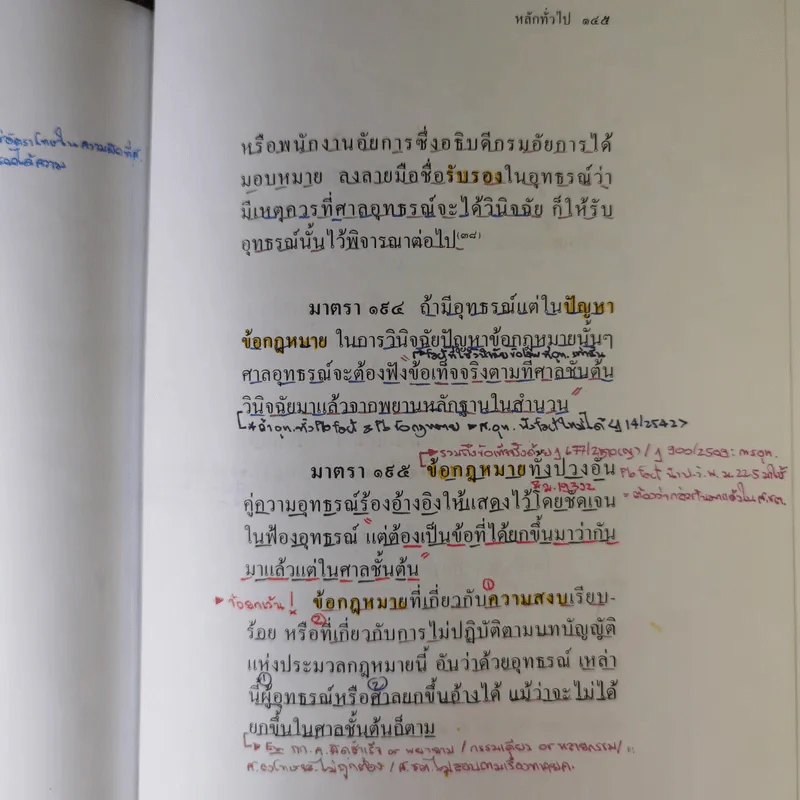 หลักทั่วไป ๑๔๕
หรือพนักงานอัยการซึ่งอธิบดีกรมอัยการได้
มอบหมาย ลงลายมือชื่อรับรองในอุทธรณ์ว่า
มีเหตุควรที่ศาลอุทธรณ์จะได้วินิจฉัย ก็ให้รับ
อุทธรณ์นั้นไว้พิจารณาต่อไป(๓๘)
มาตรา ๑๙๔ ถ้ามีอุทธรณ์แต่ในปัญหา
ข้อกฎหมาย ในการวินิจฉัยปัญหาข้อกฎหมายนั้นๆ
ศาลอุทธรณ์จะต้องฟังข้อเท็จจริงตามที่ศาลชั้นต้น
วินิจฉัยมาแล้วจากพยานหลักฐานในสำนวน
ถ้าอุท.ทั้ง Pb fact & Pb ข้อกฎหมาย ศ.อุท. ฟัง fact ใหม่ได้ ฎ 14/2542
มาตรา ๑๙๕ ข้อกฎหมายทั้งปวงอัน
ม.193ว2
คู่ความอุทธรณ์ร้องอ้างอิงให้แสดงไว้โดยชัดเจน
ในฟ้องอุทธรณ์ "แต่ต้องเป็นข้อที่ได้ยกขึ้นมาว่ากัน
มาแล้วแต่ในศาลชั้นต้น"
ข้อยกเว้น! ข้อกฎหมายที่เกี่ยวกับ①ความสงบเรียบ-
ร้อย หรือ②ที่เกี่ยวกับการไม่ปฏิบัติตามบทบัญญัติ
แห่งประมวลกฎหมายนี้ อันว่าด้วยอุทธรณ์ เหล่า
นี้①ผู้อุทธรณ์หรือ②ศาลยกขึ้นอ้างได้ แม้ว่าจะไม่ได้
ยกขึ้นในศาลชั้นต้นก็ตาม
Ex ผิดสำเร็จ or พยายาม / กรรมเดียว or หลายกรรม/